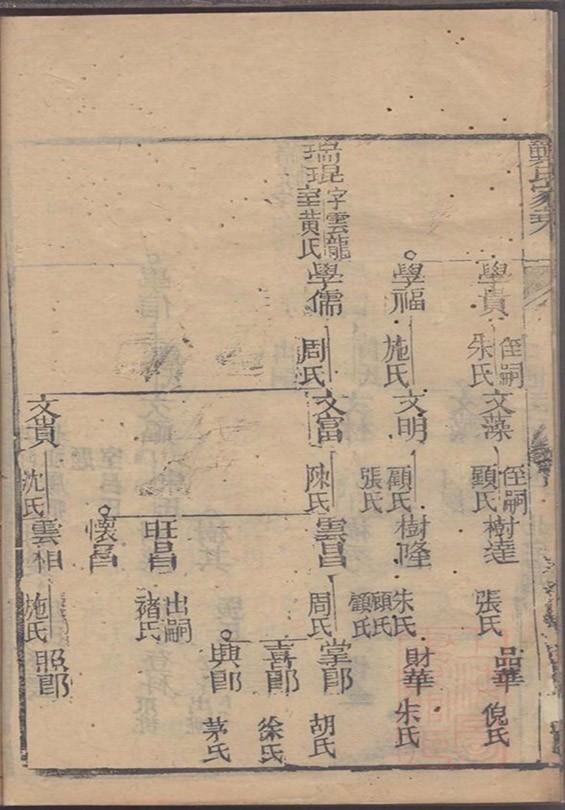 氏家乘
學員
侄嗣
朱氏
文藻
侄嗣
顧氏
樹達
張氏
品華
倪氏
學福
施氏
文明
顧氏
張氏
樹隆
朱氏
顧氏
顧氏
財華
朱氏
瑞琨
字雲龍
室黃氏
學儒
周氏
文富
陳氏
雲昌
周氏
掌郎
胡氏
喜郎
徐氏
興郎
茅氏
旺昌
出嗣
褚氏
懷昌
文貴
沈氏
雲相
施氏
照郎